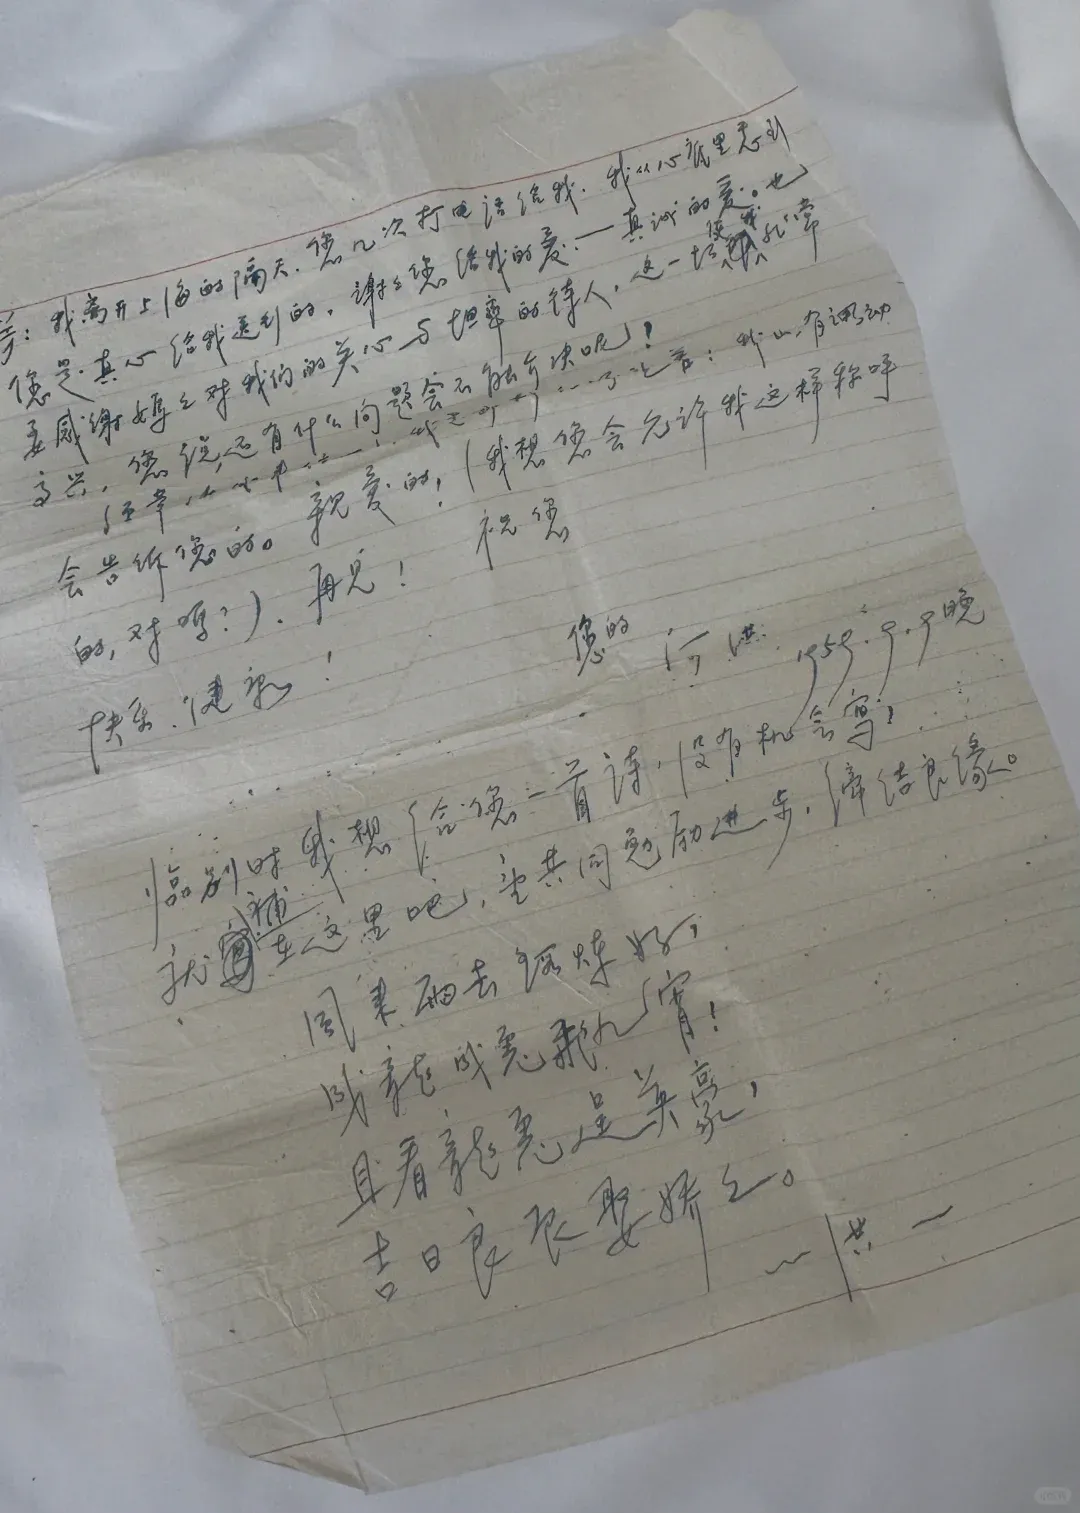 我离开上海的隔天，您几次打电话给我，我从心底里感到
您是真心给我送别的，谢谢您给我的爱，一真诚的爱。也
要感谢妈妈对我们的关心与坦率的待人，这一切使我非常
高兴，您说，还有什么问题会不能解决呢！
会告诉您的。亲爱的，（我想您会允许我这样称呼
的，对吗？）、再见！ 祝您
快乐、健康！
您的 洪 1959.9.9晚
临别时我想给您一首诗，没有机会写，
就补在这里吧，望共同勉励进步，缔结良缘。
风来雨去锻炼好，
成龙成凤乘九霄！
且看龙凤是英豪，
吉日良辰娶娇娇。
～洪～